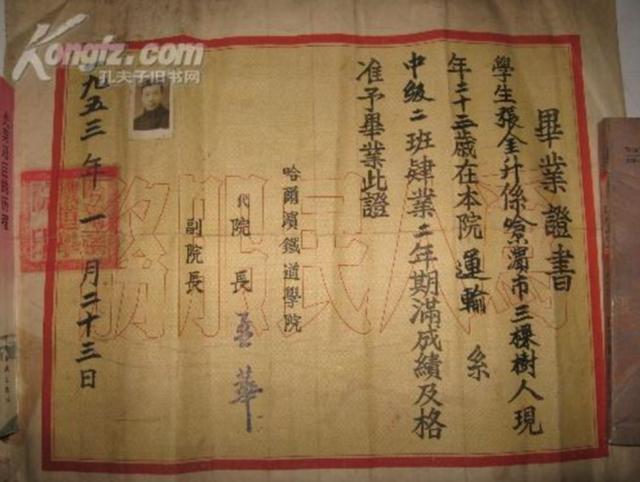 畢業證書
學生張金升係哈濱市三棵樹人現
年二十三歲在本院運輸系
中級二班肄業二年期滿成績及格
准予畢業此證
哈爾濱鐵道學院
代院長
副院長
九五三年一月二十三日
為人民服務
Kongfz.com
孔夫子旧书网